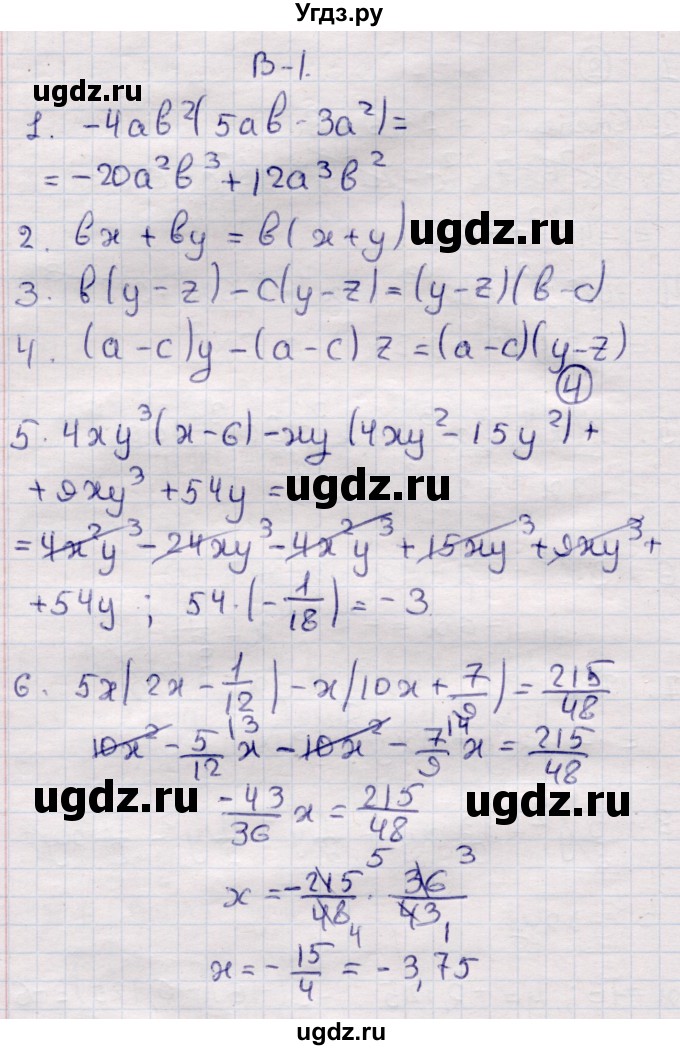 Угдз.ру
B-1.
ugdz.ru
1. -4ab²(5ab - 3a²) =
= -20a²b³ + 12a³b²
2. bx + by = b(x+y)
ugdz.ru
3. b(y-z) - c(y-z) = (y-z)(b-c)
4. (a-c)y - (a-c)z = (a-c)(y-z)
4
5. 4xy³(x-6) - xy(4xy² - 15y²) +
+ 9xy³ + 54y =
ugdz.ru
= 4x²y³ - 24xy³ - 4x²y³ + 15xy³ + 9xy³ +
+54y ; 54·(-1/18) = -3
6. 5x(2x - 1/12) - x(10x + 7/9) = 215/48
10x² - 5/12 |3 x - 10x² - 7/9 |4 x = 215/48
ugdz.ru
ugdz.ru
-43/36 x = 215/48
x = -215/48 · 36/43
5 3
4 1
x = -15/4 = -3,75
ugdz.ru